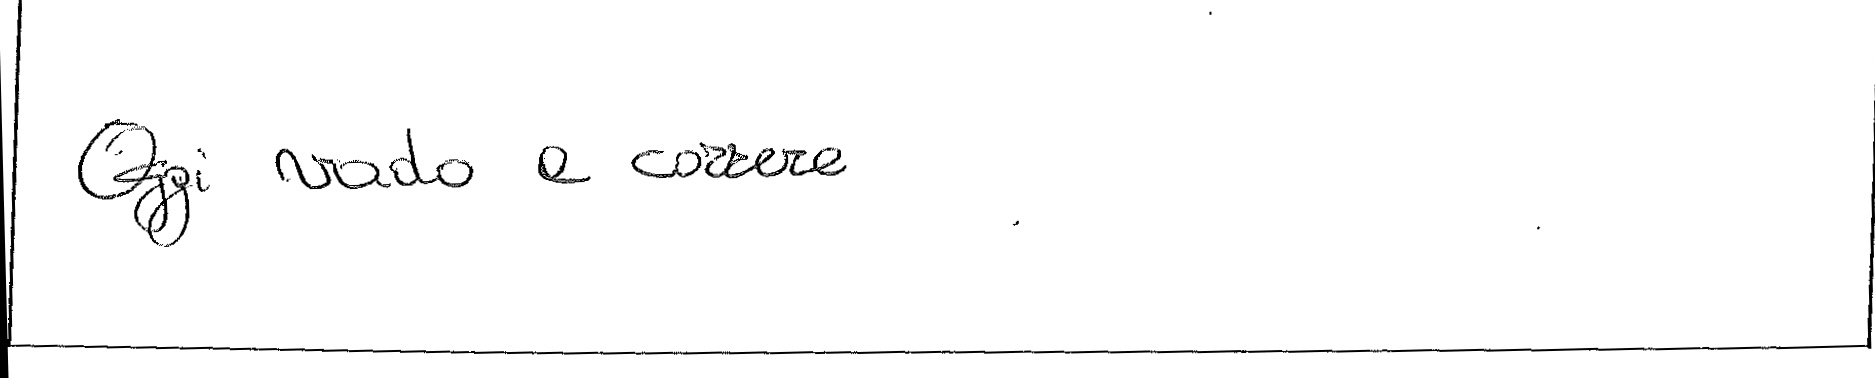 Oggi vado e correre